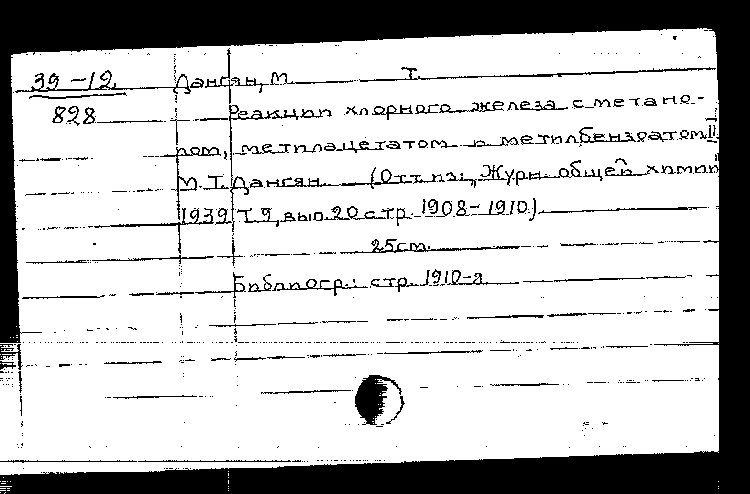 39-12
828
Дангян, М. Т.
Реакции хлорного железа с метано-
лом, метилацетатом и метилбензоатом
М. Т. Дангян (Отт. из: „Журн. общей химии"
1939 Т. 9, вып. 20 стр. 1908-1910).
25см.
Библиогр.: стр. 1910-я